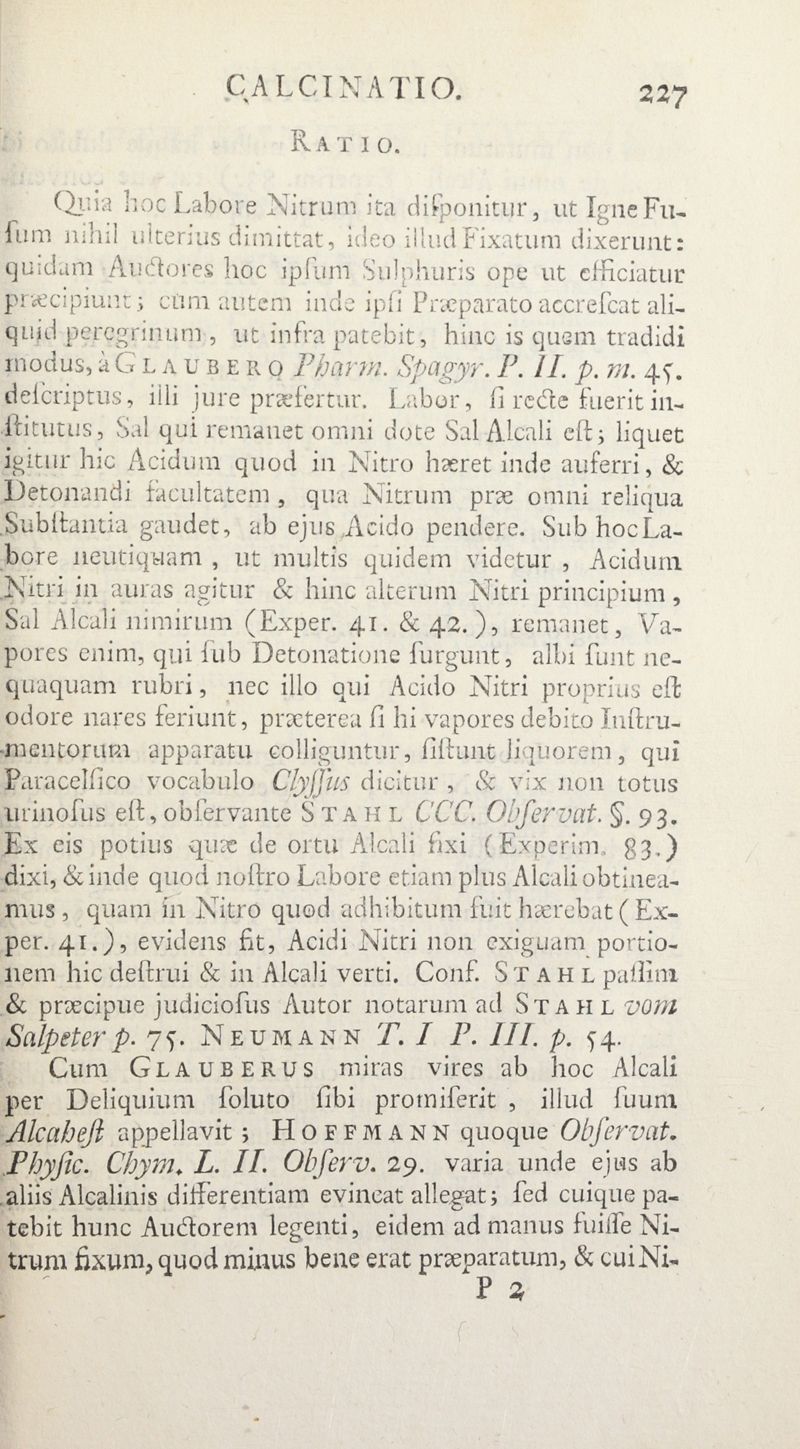 CALCINATIO. 227
RATIO.
Quia hoc Labore Nitrum ita diſponitur, ut Igne Fu-
ſum nihil ulterius dimittat, ideo illud Fixatum dixerunt:
quidam Auctores hoc ipſum Sulphuris ope ut efficiatur
præcipiunt; cùm autem inde ipſi Præparato accreſcat ali-
quid peregrinum, ut infra patebit, hinc is quem tradidi
modus, à GLAUBERO Pharm. Spagyr. P. II. p. m. 45.
deſcriptus, illi jure præfertur. Labor, ſi recte fuerit in-
ſtitutus, Sal qui remanet omni dote Sal Alcali eſt; liquet
igitur hic Acidum quod in Nitro hæret inde auferri, &
Detonandi facultatem, qua Nitrum præ omni reliqua
Subſtantia gaudet, ab ejus Acido pendere. Sub hoc La-
bore neutiquam, ut multis quidem videtur, Acidum
Nitri in auras agitur & hinc alterum Nitri principium,
Sal Alcali nimirum (Exper. 41. & 42.), remanet, Va-
pores enim, qui ſub Detonatione ſurgunt, albi ſunt ne-
quaquam rubri, nec illo qui Acido Nitri proprius eſt
odore nares feriunt, præterea ſi hi vapores debito Inſtru-
mentorum apparatu colliguntur, ſiſtunt liquorem, qui
Paracelſico vocabulo Clyſſus dicitur, & vix non totus
urinoſus eſt, obſervante STAHL CCC. Obſervat. §. 93.
Ex eis potius quæ de ortu Alcali fixi (Experim. 83.)
dixi, & inde quod noſtro Labore etiam plus Alcali obtinea-
mus, quam in Nitro quod adhibitum fuit hærebat (Ex-
per. 41.), evidens fit, Acidi Nitri non exiguam portio-
nem hic deſtrui & in Alcali verti. Conf. STAHL paſſim
& præcipue judicioſus Autor notarum ad STAHL vom
Salpeter p. 75. NEUMANN T. I P. III. p. 54.
Cum GLAUBERUS miras vires ab hoc Alcali
per Deliquium ſoluto ſibi promiſerit, illud ſuum
Alcaheſt appellavit; HOFFMANN quoque Obſervat.
Phyſic. Chym. L. II. Obſerv. 29. varia unde ejus ab
aliis Alcalinis differentiam evincat allegat; ſed cuique pa-
tebit hunc Auctorem legenti, eidem ad manus fuiſſe Ni-
trum fixum, quod minus bene erat præparatum, & cui Ni-
P 2